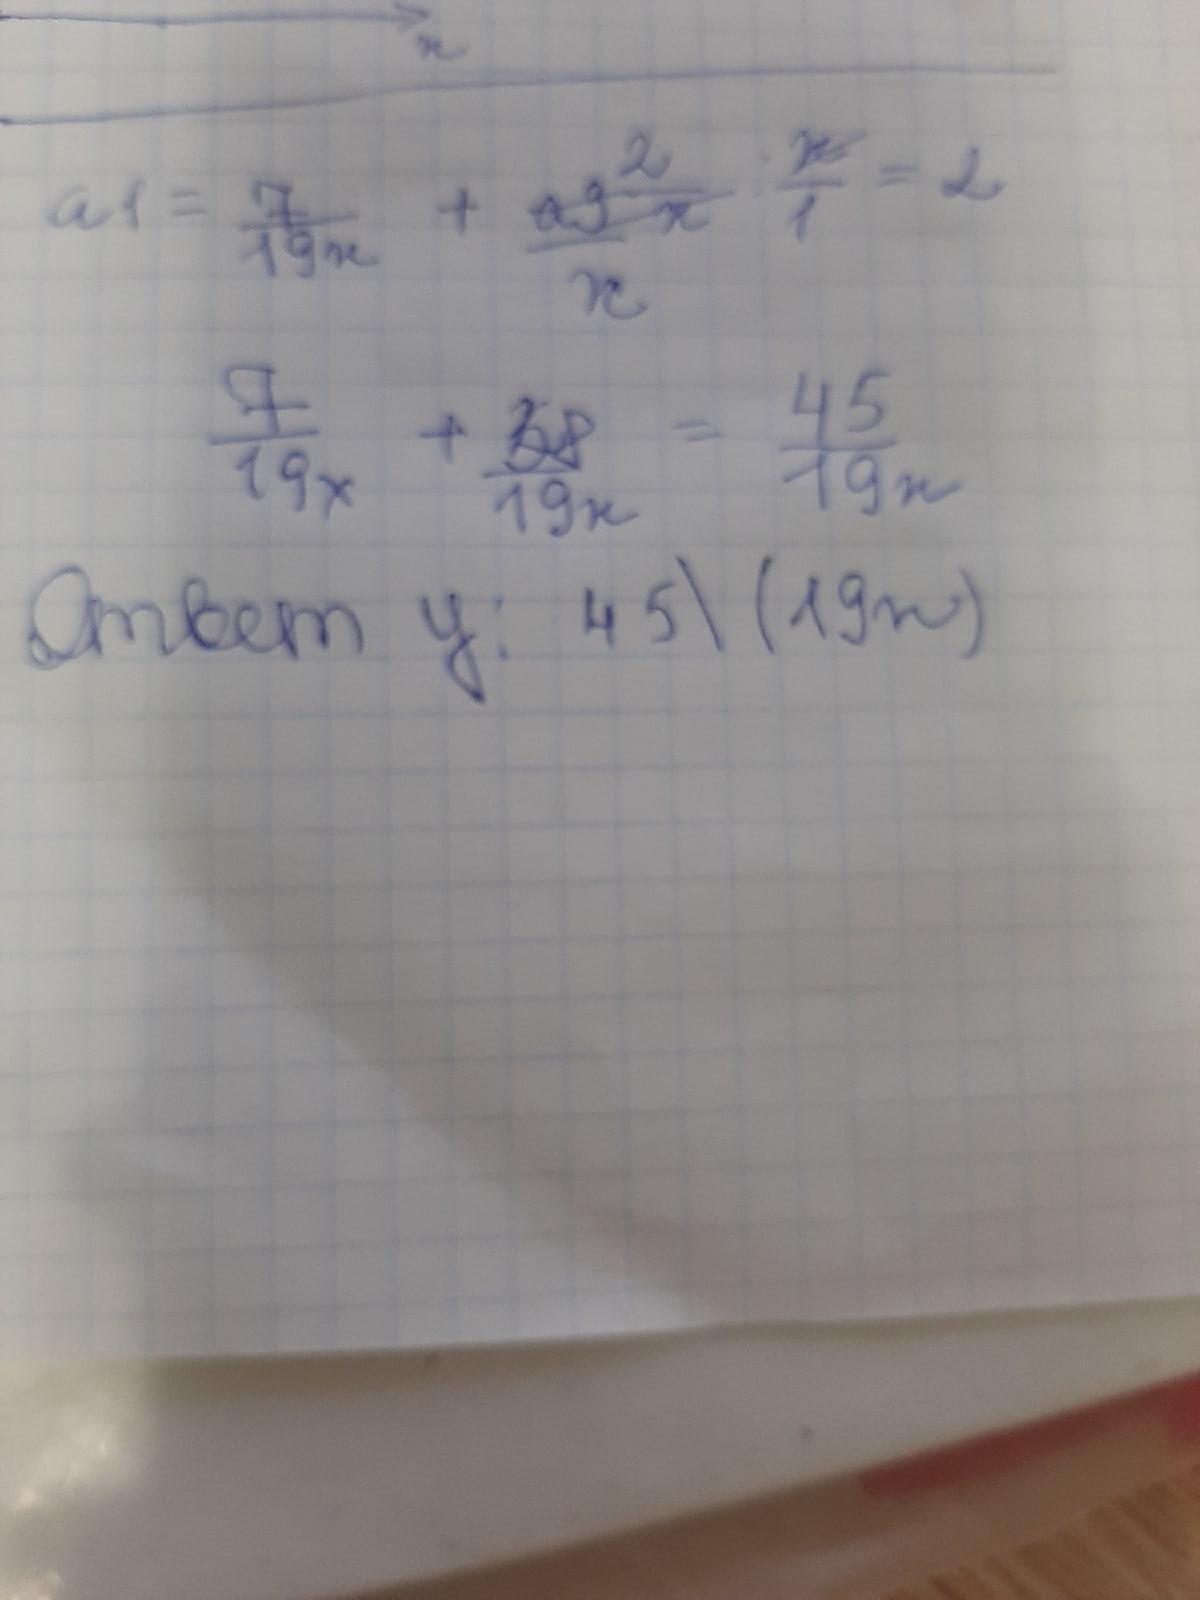 x
a1 = 7/19x + 2/x · x/1 = 2
x
7/19x + 38/19x = 45/19x
Ответ y: 45\(19x)